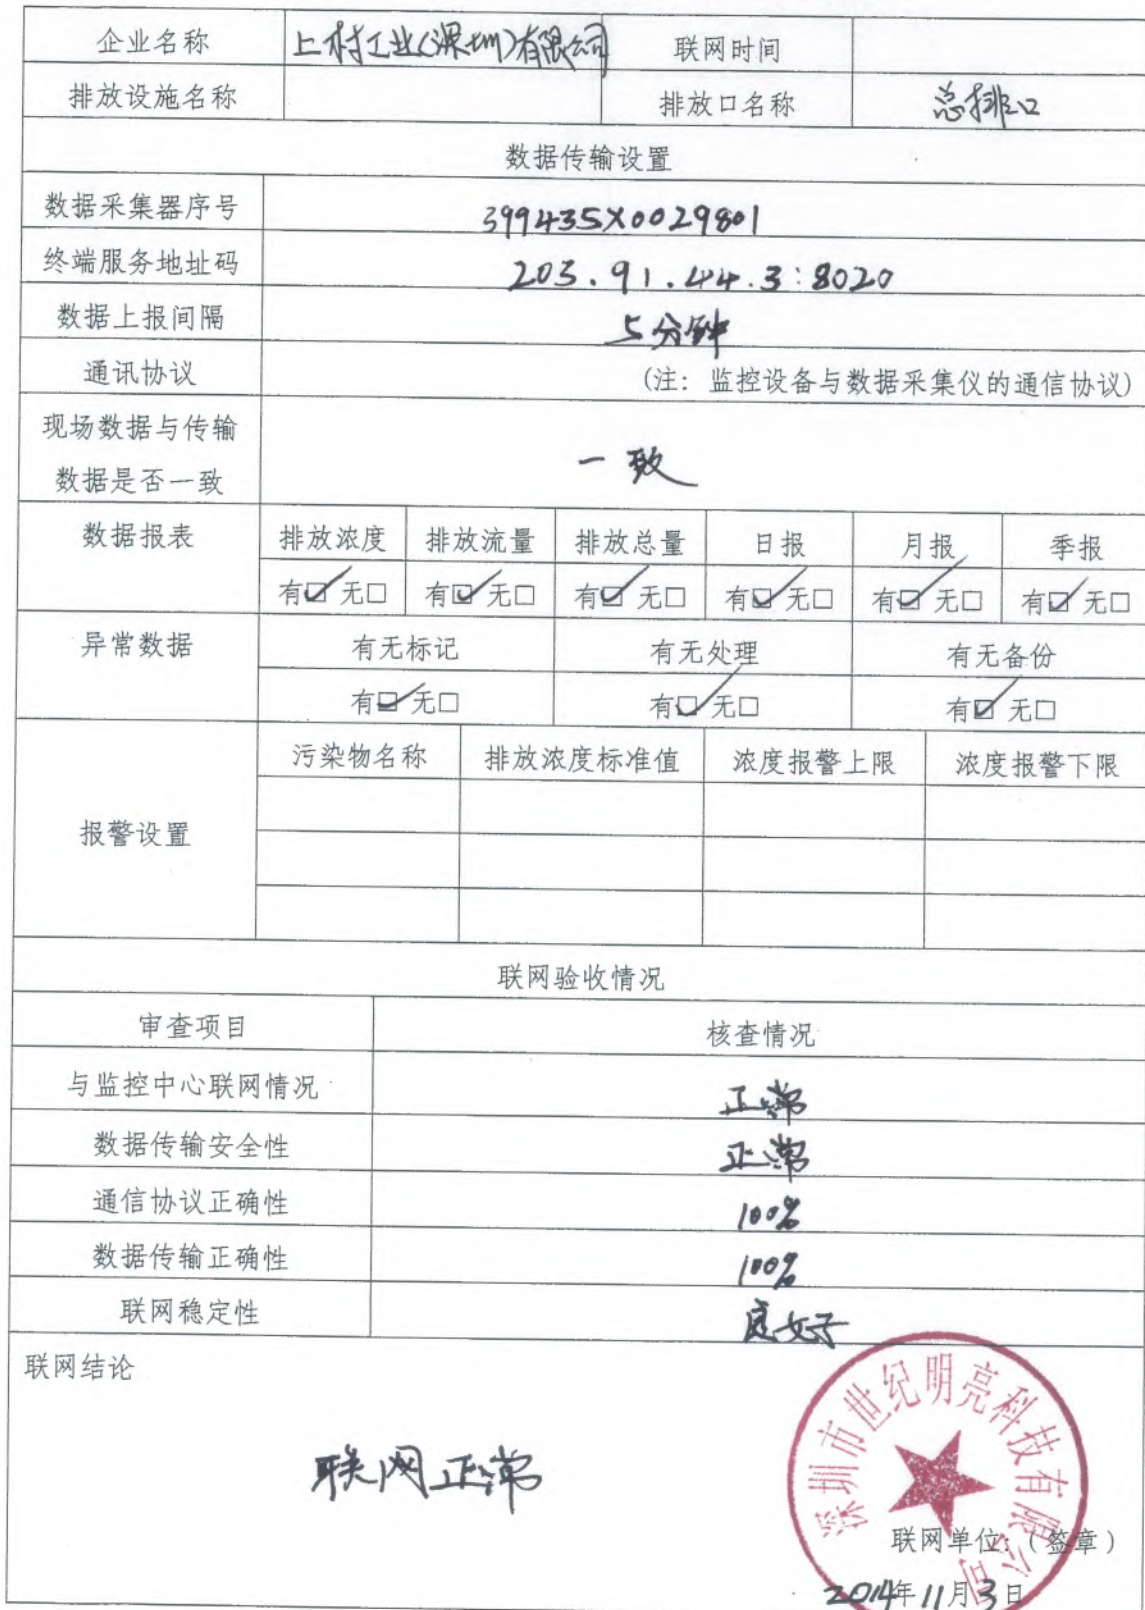 企业名称 上村工业(深圳)有限公司 联网时间
排放设施名称 排放口名称 总排口
数据传输设置
数据采集器序号 399435X0029801
终端服务地址码 203.91.44.3:8020
数据上报间隔 5分钟
通讯协议 (注: 监控设备与数据采集仪的通信协议)
现场数据与传输
数据是否一致 一致
数据报表 排放浓度 排放流量 排放总量 日报 月报 季报
有☑ 无□ 有☑ 无□ 有☑ 无□ 有☑ 无□ 有☑ 无□ 有☑ 无□
异常数据 有无标记 有无处理 有无备份
有☑ 无□ 有☑ 无□ 有☑ 无□
报警设置 污染物名称 排放浓度标准值 浓度报警上限 浓度报警下限
联网验收情况
审查项目 核查情况
与监控中心联网情况 正常
数据传输安全性 正常
通信协议正确性 100%
数据传输正确性 100%
联网稳定性 良好
联网结论
联网正常
深圳市世纪明亮科技有限公司
联网单位:(签章)
2014年11月3日